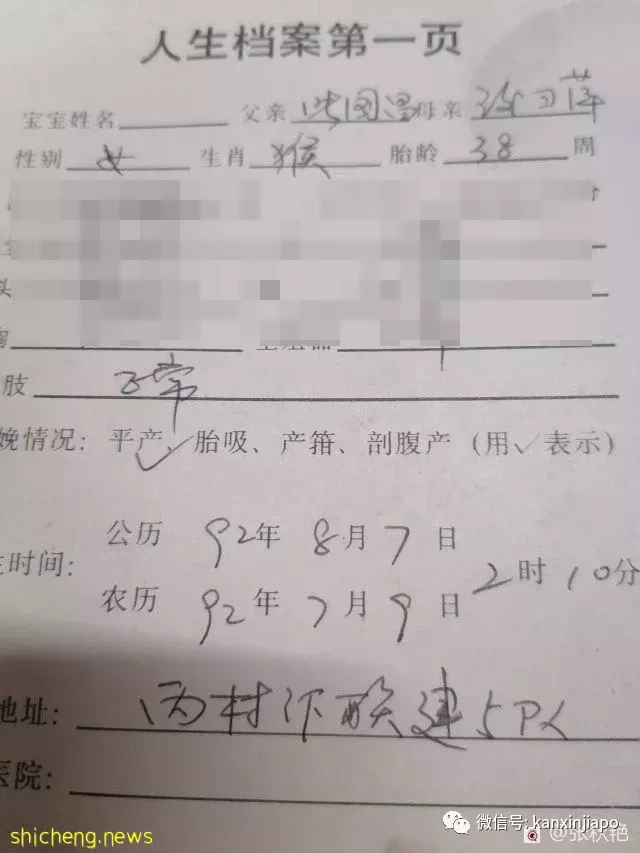 人生档案第一页
宝宝姓名 父亲 母亲
性别 女 生肖 猴 胎龄 38 周
头
肢 正常
娩情况：平产✓、胎吸、产箝、剖腹产（用✓表示）
公历 92年 8月 7日
生时间： 2时10分
农历 92年 7月 9日
地址： 村 联建
医院：
微信号: kanxinjiapo
@张秋艳
shicheng.news